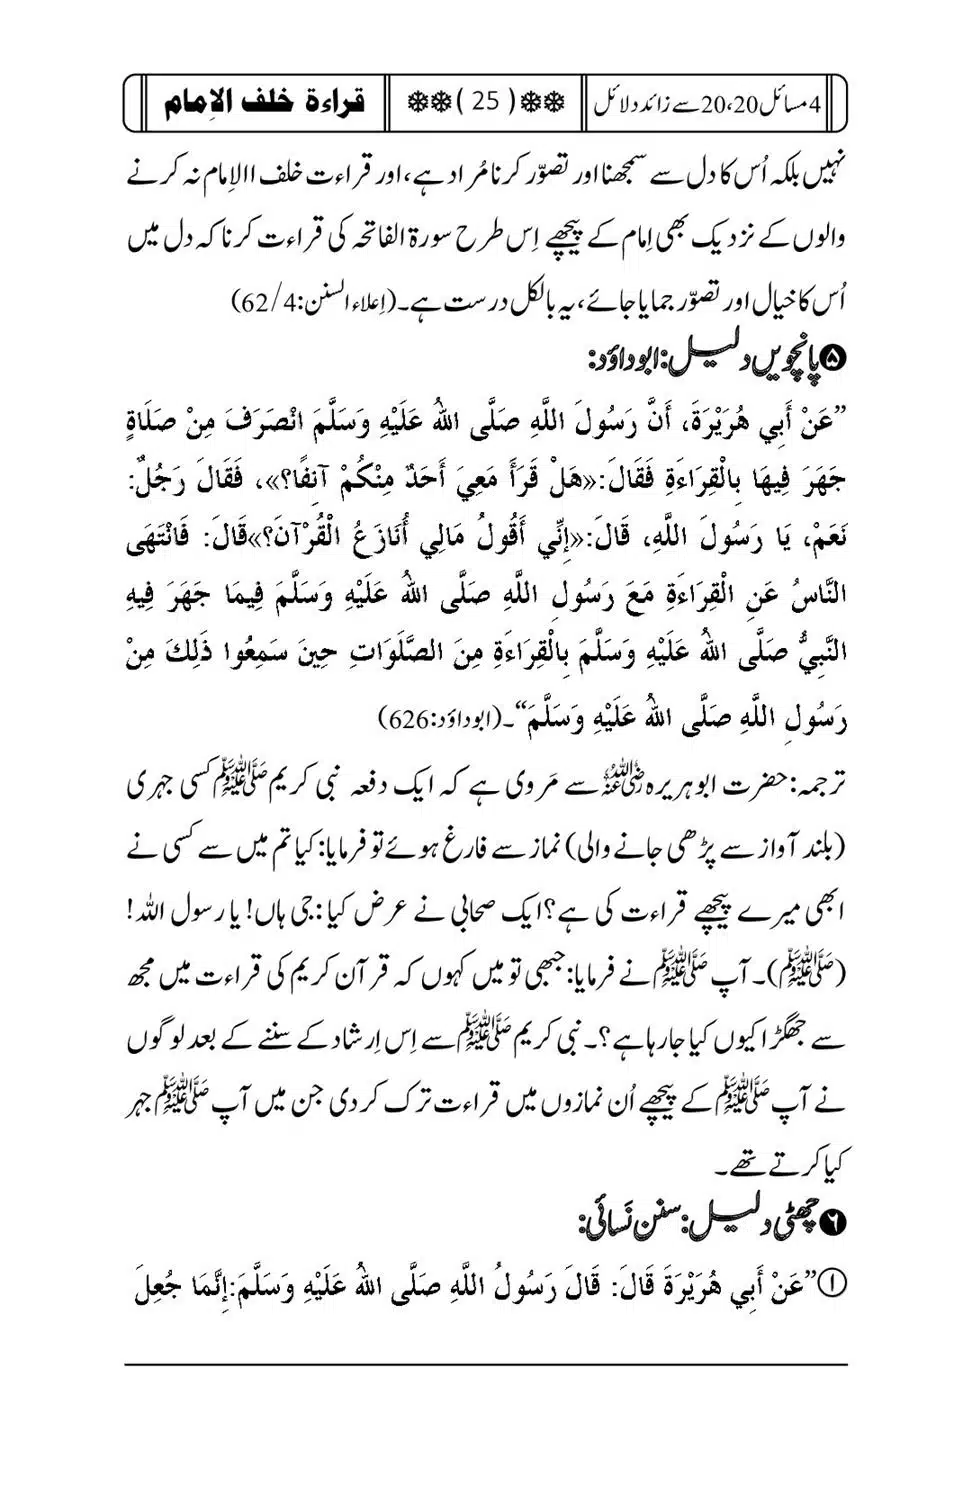 4 مسائل 20،20 سے زائد دلائل ❄❄ ( 25 ) ❄❄ قراءة خلف الإمام
نہیں بلکہ اُس کا دل سے سمجھنا اور تصوّر کرنا مُراد ہے، اور قراءت خلف االاِمام نہ کرنے
والوں کے نزدیک بھی اِمام کے پیچھے اِس طرح سورۃ الفاتحہ کی قراءت کرنا کہ دل میں
اُس کا خیال اور تصوّر جمایا جائے، یہ بالکل درست ہے۔ (اِعلاء السنن: 4/62)
❺ پانچویں دلیل: ابوداؤد:
”عَنْ أَبِي هُرَيْرَةَ، أَنَّ رَسُولَ اللَّهِ صَلَّى اللهُ عَلَيْهِ وَسَلَّمَ انْصَرَفَ مِنْ صَلَاةٍ
جَهَرَ فِيهَا بِالْقِرَاءَةِ فَقَالَ:«هَلْ قَرَأَ مَعِيَ أَحَدٌ مِنْكُمْ آنِفًا؟»، فَقَالَ رَجُلٌ:
نَعَمْ، يَا رَسُولَ اللَّهِ، قَالَ:«إِنِّي أَقُولُ مَالِي أُنَازَعُ الْقُرْآنَ؟»قَالَ: فَانْتَهَى
النَّاسُ عَنِ الْقِرَاءَةِ مَعَ رَسُولِ اللَّهِ صَلَّى اللهُ عَلَيْهِ وَسَلَّمَ فِيمَا جَهَرَ فِيهِ
النَّبِيُّ صَلَّى اللهُ عَلَيْهِ وَسَلَّمَ بِالْقِرَاءَةِ مِنَ الصَّلَوَاتِ حِينَ سَمِعُوا ذَلِكَ مِنْ
رَسُولِ اللَّهِ صَلَّى اللهُ عَلَيْهِ وَسَلَّمَ“۔ (ابوداؤد: 626)
ترجمہ: حضرت ابوہریرہ رضی اللہ عنہ سے مَروی ہے کہ ایک دفعہ نبی کریم ﷺ کسی جہری
(بلند آواز سے پڑھی جانے والی) نماز سے فارغ ہوئے تو فرمایا: کیا تم میں سے کسی نے
ابھی میرے پیچھے قراءت کی ہے؟ ایک صحابی نے عرض کیا: جی ہاں! یا رسول اللہ!
(ﷺ)۔ آپ ﷺ نے فرمایا: جبھی تو میں کہوں کہ قرآن کریم کی قراءت میں مجھ
سے جھگڑا کیوں کیا جارہا ہے؟۔ نبی کریم ﷺ سے اِس اِرشاد کے سننے کے بعد لوگوں
نے آپ ﷺ کے پیچھے اُن نمازوں میں قراءت ترک کردی جن میں آپ ﷺ جہر
کیا کرتے تھے۔
❻ چھٹی دلیل: سنن نَسائی:
① ”عَنْ أَبِي هُرَيْرَةَ قَالَ: قَالَ رَسُولُ اللَّهِ صَلَّى اللهُ عَلَيْهِ وَسَلَّمَ:إِنَّمَا جُعِلَ